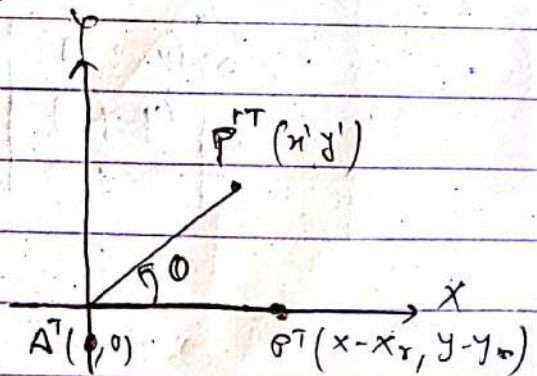 Y
P'^T (x' y')
θ
X
A^T (0, 0)
P^T (x-x_r, y-y_r)